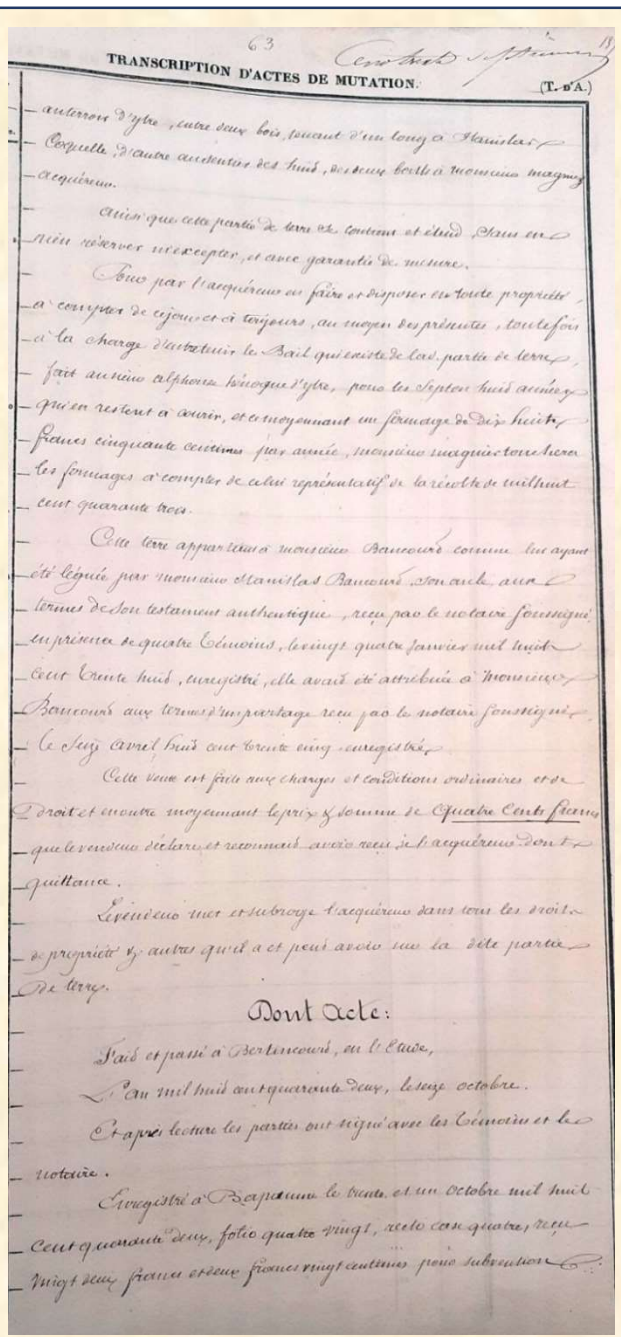 63
TRANSCRIPTION D'ACTES DE MUTATION.
(T. D'A.)
au terroir d'ytre, entre deux bois, tenant d'un long à Stanislas
Coquelle, d'autre au sentier des huid, des deux bouts à monsieur magniez
acquéreur.
Ainsi que cette partie de terre se contient et étend, sans en
rien réserver ni excepter, et avec garantie de mesure.
Pour par l'acquéreur en faire et disposer en toute propriété,
à compter de ce jour et à toujours, au moyen des présentes, toutefois
à la charge d'entretenir le Bail qui existe de lad. partie de terre,
fait au sieur alphonse d'ytre, pour les Sept ou huid années
qui en restent à courir, et ce moyennant un fermage de dix huit
francs cinquante centimes par année, monsieur magniez touchera
les fermages à compter de celui représentatif de la récolte de mil huit
cent quarante trois.
Cette terre appartient à monsieur Bancourd comme lui ayant
été léguée par monsieur Stanislas Bancourd, son aux
termes de son testament authentique, reçu par le notaire soussigné,
en présence de quatre témoins, le vingt quatre janvier mil huit
cent trente huid, enregistré, elle avait été attribuée à monsieur
Bancourd aux termes d'un partage reçu par le notaire soussigné,
le Seize avril huid cent trente cinq enregistré
Cette vente est faite aux charges et conditions ordinaires et de
Droit et en outre moyennant le prix & somme de Quatre Cents francs
que le vendeur déclare et reconnait avoir reçu de l'acquéreur dont
quittance.
Le vendeur met et subroge l'acquéreur dans tous les droits
de propriété & autres qu'il a et peud avoir sur la dite partie
De terre.
Dont Acte:
Faid et passé à Bertincourd, en l'Etude,
L'an mil huid cent quarante deux, le seize octobre.
Et après lecture les parties ont signé avec les témoins et le
notaire.
Enregistré à Bapaume le trente et un octobre mil huit
cent quarante deux, folio quatre vingt, recto case quatre, reçu
vingt deux francs et deux francs vingt centimes pour subvention